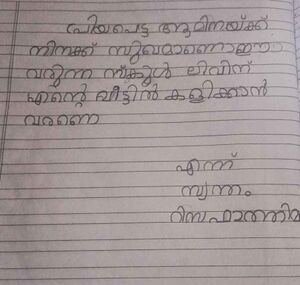 പ്രിയപെട്ട ആമിനയ്ക്ക്
നിനക്ക് സുഖമാണൊ ഈ
വരുന്ന സ്കൂൾ ലിവിന്
എന്റെ വീട്ടിൽ കളിക്കാൻ
വരണെ
എന്ന്
സ്വന്തം
റിസ ഫാത്തിമ